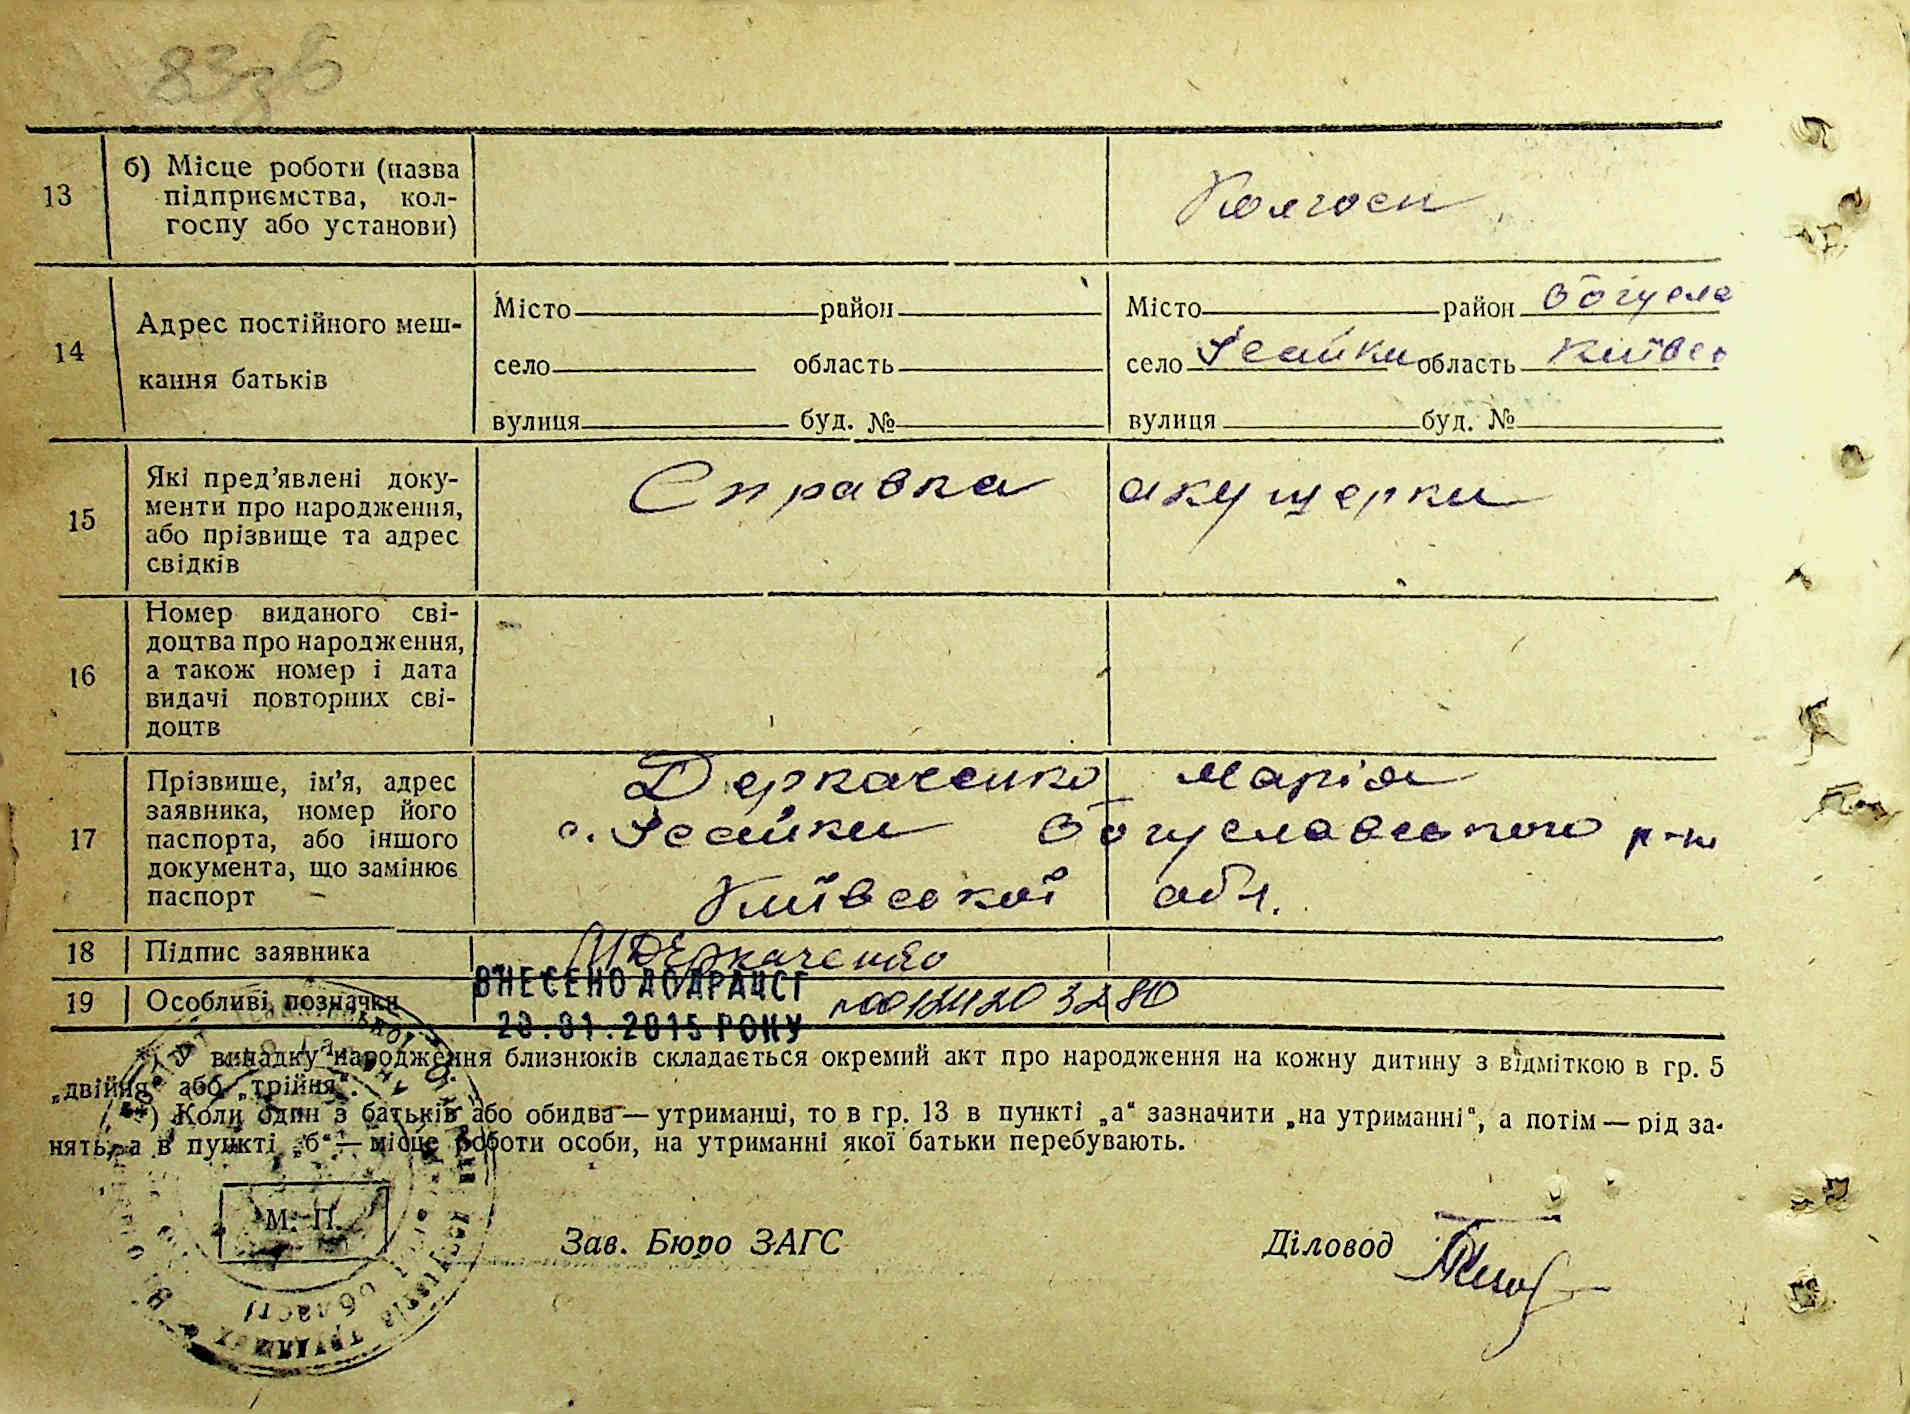 83 зв
13
б) Місце роботи (назва
підприємства, кол-
госпу або установи)
Колгосп
14
Адрес постійного меш-
кання батьків
Місто район
село область
вулиця буд. №
Місто район Богусла
село Ісайки область Київсь
вулиця буд. №
15
Які пред’явлені доку-
менти про народження,
або прізвище та адрес
свідків
Справка акушерки
16
Номер виданого сві-
доцтва про народження,
а також номер і дата
видачі повторних сві-
доцтв
17
Прізвище, ім’я, адрес
заявника, номер його
паспорта, або іншого
документа, що замінює
паспорт
Деркаченко Марія
с. Ісайки Богуславського р-ну
Київської обл.
18
Підпис заявника
МДеркаченко
19
Особливі позначки
ВНЕСЕНО ДО ДРАЦСГ
.01.2015 РОКУ
*) У випадку народження близнюків складається окремий акт про народження на кожну дитину з відміткою в гр. 5
„двійня“ або „трійня“.
**) Коли один з батьків або обидва — утриманці, то в гр. 13 в пункті „а“ зазначити „на утриманні“, а потім — рід за-
нять, а в пункті „б“ — місце роботи особи, на утриманні якої батьки перебувають.
М. П.
Зав. Бюро ЗАГС
Діловод
області
трудящих